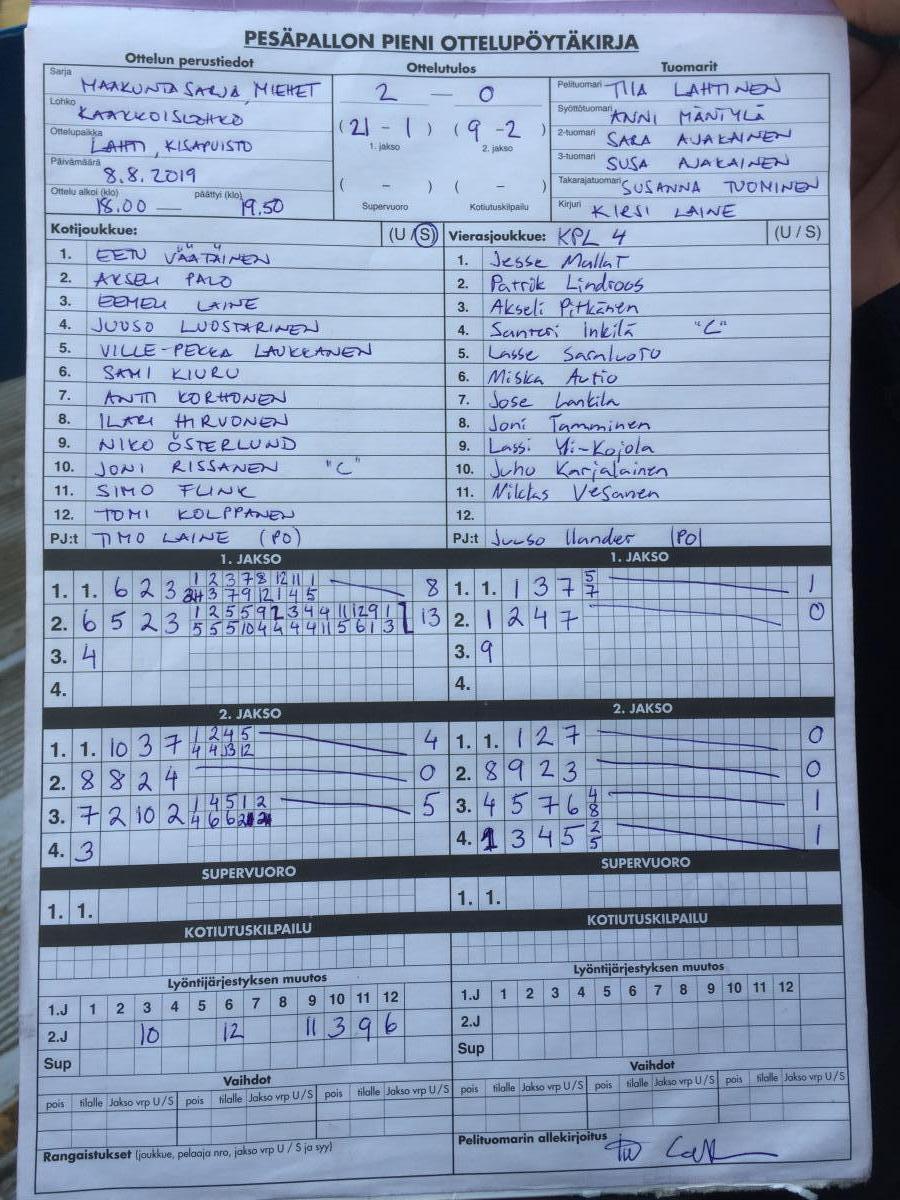 PESÄPALLON PIENI OTTELUPÖYTÄKIRJA
Ottelun perustiedot
Sarja MAAKUNTASARJA, MIEHET
Lohko KAAKKOISLOHKO
Ottelupaikka LAHTI, KISAPUISTO
Päivämäärä 8.8.2019
Ottelu alkoi (klo) 18.00 — päättyi (klo) 19.50
Ottelutulos
2 — 0
(21 - 1) (9 - 2)
1. jakso 2. jakso
( - ) ( - )
Supervuoro Kotiutuskilpailu
Tuomarit
Pelituomari TIIA LAHTINEN
Syöttötuomari ANNI MÄNTYLÄ
2-tuomari SARA AVAKAINEN
3-tuomari SUSA AVAKAINEN
Takarajatuomari SUSANNA TUOMINEN
Kirjuri KIRSI LAINE
Kotijoukkue: (U / S)
1. EETU VÄÄTÄINEN
2. AKSELI PALO
3. EEMELI LAINE
4. JUUSO LUOSTARINEN
5. VILLE-PEKKA LAUKKANEN
6. SAMI KIURU
7. ANTTI KORHONEN
8. ILARI HIRVONEN
9. NIKO ÖSTERLUND
10. JONI RISSANEN "C"
11. SIMO FLINK
12. TOMI KOLPPANEN
PJ:t TIMO LAINE (PO)
Vierasjoukkue: KPL 4 (U / S)
1. Jesse Mallat
2. Patrik Lindroos
3. Akseli Pitkänen
4. Santeri Inkilä "C"
5. Lasse Saraluoto
6. Miska Autio
7. Jose Lankila
8. Joni Tamminen
9. Lassi Yli-Kojola
10. Juho Karjalainen
11. Niklas Vesanen
12.
PJ:t Juuso Ilander (PO)
1. JAKSO
1. 1. 6 2 3 1 2 3 7 8 12 11 1 8
3 7 9 12 1 4 5
2. 6 5 2 3 1 2 5 5 9 2 3 4 4 11 12 9 1 13
5 5 5 10 4 4 4 4 11 5 6 1 3
3. 4
4.
1. JAKSO
1. 1. 1 3 7 5 1
7
2. 1 2 4 7 0
3. 9
4.
2. JAKSO
1. 1. 10 3 7 1 2 4 5 4
4 4 13 12
2. 8 8 2 4 0
3. 7 2 10 2 1 4 5 1 2 5
4 6 6
4. 3
2. JAKSO
1. 1. 1 2 7 0
2. 8 9 2 3 0
3. 4 5 7 6 4 1
8
4. 1 3 4 5 2 1
5
SUPERVUORO
1. 1.
SUPERVUORO
1. 1.
KOTIUTUSKILPAILU
KOTIUTUSKILPAILU
Lyöntijärjestyksen muutos
1.J 1 2 3 4 5 6 7 8 9 10 11 12
2.J 10 12 11 3 9 6
Sup
Lyöntijärjestyksen muutos
1.J 1 2 3 4 5 6 7 8 9 10 11 12
2.J
Sup
Vaihdot
pois tilalle Jakso vrp U / S pois tilalle Jakso vrp U / S pois tilalle Jakso vrp U / S
Vaihdot
pois tilalle Jakso vrp U / S pois tilalle Jakso vrp U / S pois tilalle Jakso vrp U / S
Rangaistukset (joukkue, pelaaja nro, jakso vrp U / S ja syy)
Pelituomarin allekirjoitus